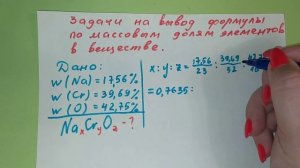 Задачи на вывод формулы
по массовым долям элементов
в веществе.
Дано:
w (Na) = 17,56%
w (Cr) = 39,69%
w (O) = 42,75%
NaxCryOz - ?
x : y : z = 17,56/23 : 39,69/52 :
= 0,7635 :